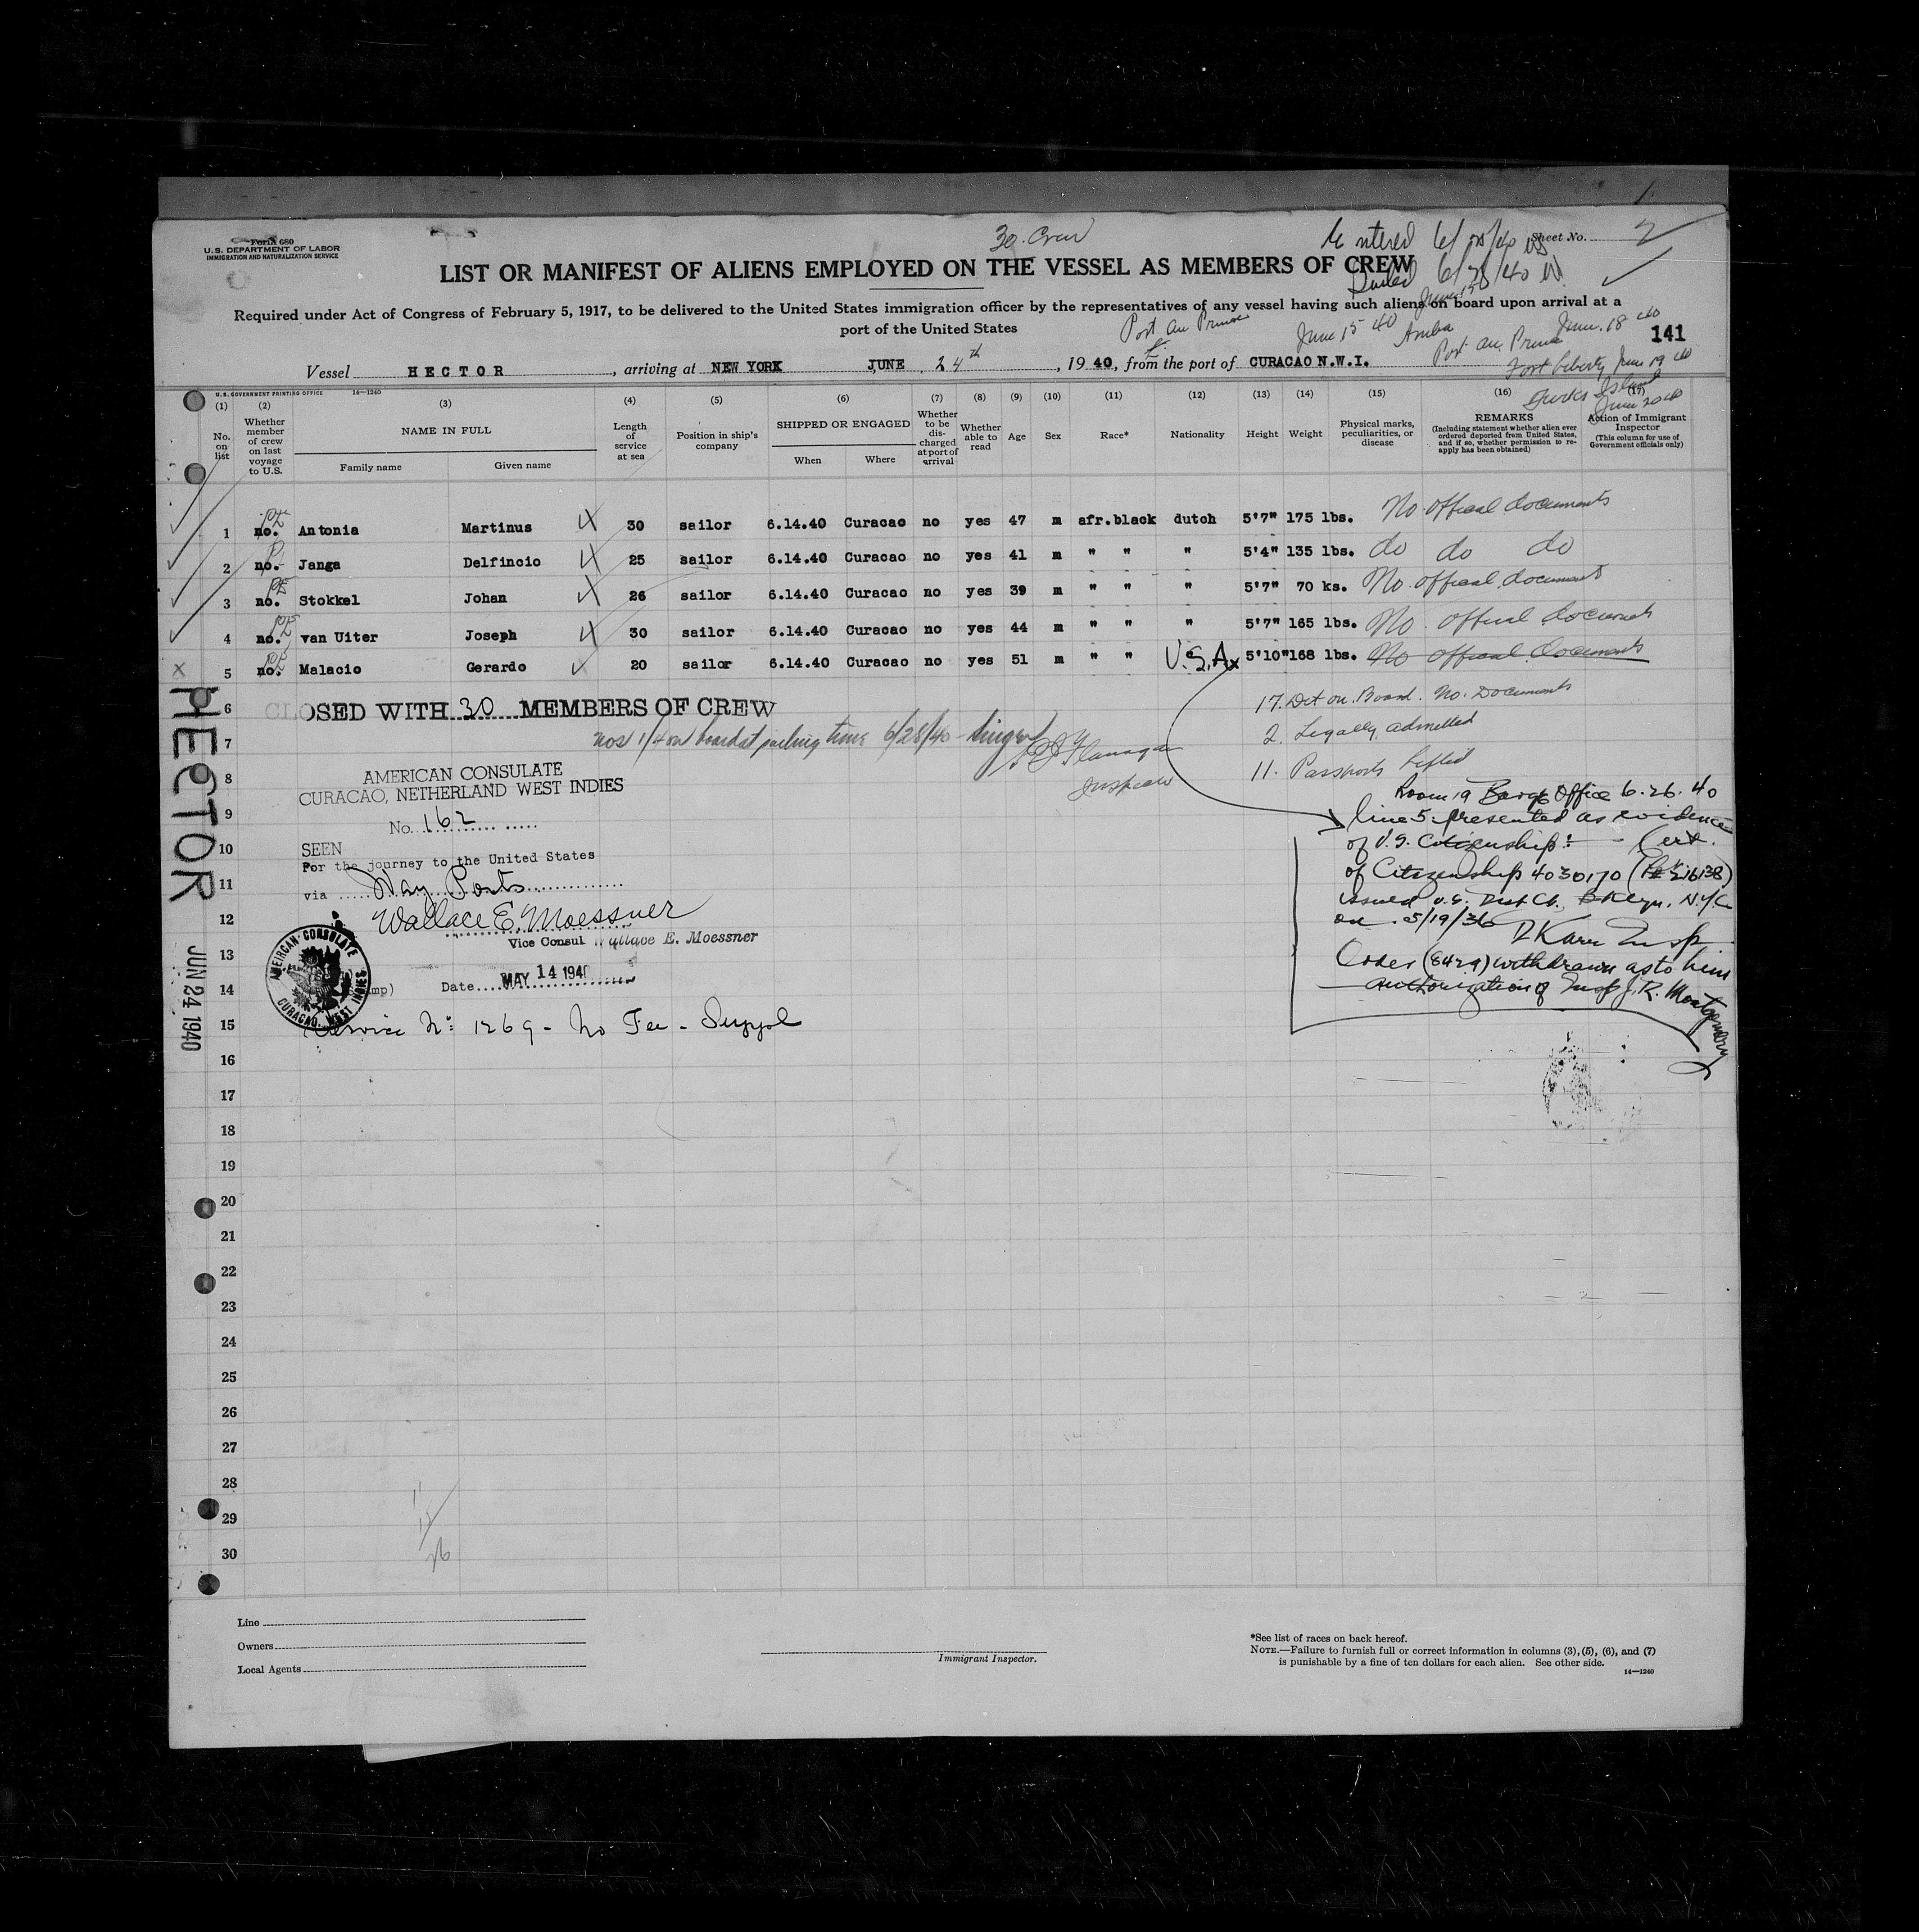 Form 680
U.S. DEPARTMENT OF LABOR
IMMIGRATION AND NATURALIZATION SERVICE
30 Crew
Entered 6/25/40
Sheet No. 2
LIST OR MANIFEST OF ALIENS EMPLOYED ON THE VESSEL AS MEMBERS OF CREW
6/28/40
Required under Act of Congress of February 5, 1917, to be delivered to the United States immigration officer by the representatives of any vessel having such aliens on board upon arrival at a
port of the United States
Port au Prince
June 15 40 Aruba
Port au Prince June. 18 40
141
Vessel HECTOR, arriving at NEW YORK JUNE 24th, 1940, from the port of CURACAO N.W.I.
Fort Liberty June 19 40
Turks Island
June 20 40
U. S. GOVERNMENT PRINTING OFFICE 14—1240
(1) (2) (3) (4) (5) (6) (7) (8) (9) (10) (11) (12) (13) (14) (15) (16) (17)
No. on list
Whether member of crew on last voyage to U.S.
NAME IN FULL
Family name Given name
Length of service at sea
Position in ship's company
SHIPPED OR ENGAGED
When Where
Whether to be discharged at port of arrival
Whether able to read
Age
Sex
Race*
Nationality
Height
Weight
Physical marks, peculiarities, or disease
REMARKS
(Including statement whether alien ever ordered deported from United States, and if so, whether permission to reapply has been obtained)
Action of Immigrant Inspector
(This column for use of Government officials only)
1 no. Antonia Martinus 30 sailor 6.14.40 Curacao no yes 47 m afr.black dutch 5'7" 175 lbs. No offical documents
2 no. Janga Delfincio 25 sailor 6.14.40 Curacao no yes 41 m " " " 5'4" 135 lbs. do do do
3 no. Stokkel Johan 26 sailor 6.14.40 Curacao no yes 39 m " " " 5'7" 70 ks. No offical documents
4 no. van Uiter Joseph 30 sailor 6.14.40 Curacao no yes 44 m " " " 5'7" 165 lbs. No offical documents
x 5 no. Malacio Gerardo 20 sailor 6.14.40 Curacao no yes 51 m " " U.S.A. x 5'10" 168 lbs. No offical Documents
6 CLOSED WITH 30 MEMBERS OF CREW
17. Det on Board. No. Documents
7 nos 1/4 on board at sailing time 6/28/40
2. Legally admitted
Flanagan
11. Passports Lifted
8 AMERICAN CONSULATE
CURACAO, NETHERLAND WEST INDIES
9 No. 162
10 SEEN
For the journey to the United States
11 via Way Ports
12 Wallace E. Moessner
Vice Consul Wallace E. Moessner
13
AMERICAN CONSULATE
CURACAO, WEST INDIES
14 Date MAY 14 1940
15 Service No: 1269 - No Fee - Suppl
Room 19 Barge Office 6.26.40
line 5 presented as evidence
of U.S. Citizenship: - Cert.
of Citizenship 4030170
issued U.S. Dist Ct., Bklyn, N.Y.
on 5/19/36 Karr Insp
Order (8429) withdrawn as to him
authorization of Insp J. R. Montgomery
HECTOR
JUN 24 1940
16
17
18
19
20
21
22
23
24
25
26
27
28
29
30
Line
Owners
Local Agents
Immigrant Inspector.
*See list of races on back hereof.
NOTE.—Failure to furnish full or correct information in columns (3), (5), (6), and (7)
is punishable by a fine of ten dollars for each alien. See other side.
14—1240